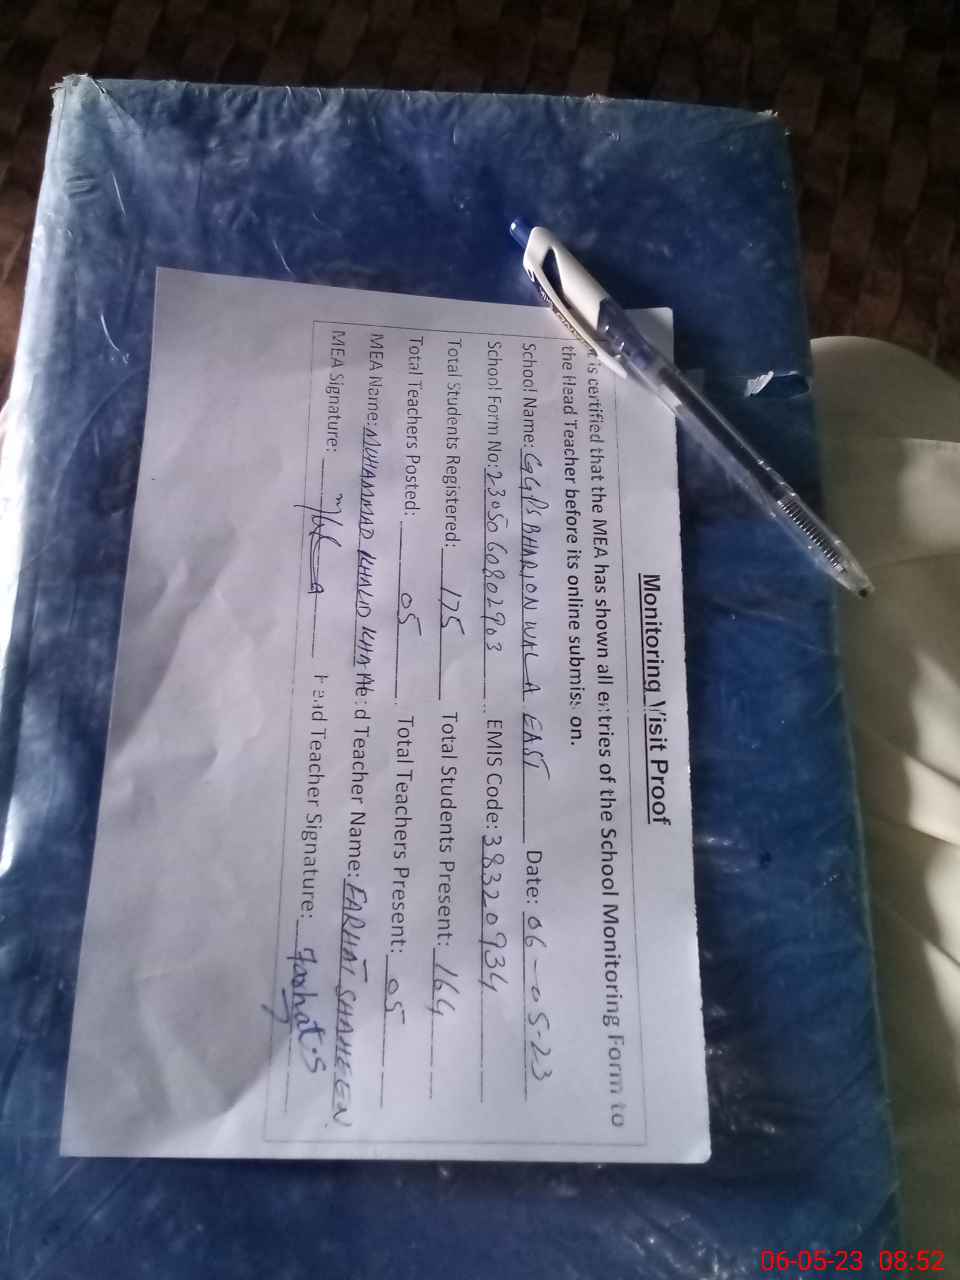 Monitoring Visit Proof
is certified that the MEA has shown all entries of the School Monitoring Form to
the Head Teacher before its online submission.
School Name: GGPS BHARION WALA EAST Date: 06-05-23
School Form No: 2305060802903 EMIS Code: 38320934
Total Students Registered: 175 Total Students Present: 164
Total Teachers Posted: 05 Total Teachers Present: 05
MEA Name: MUHAMMAD KHALID KHAN Head Teacher Name: FARHAT SHAHEEN
MEA Signature: Head Teacher Signature: Farhat.S
06-05-23 08:52